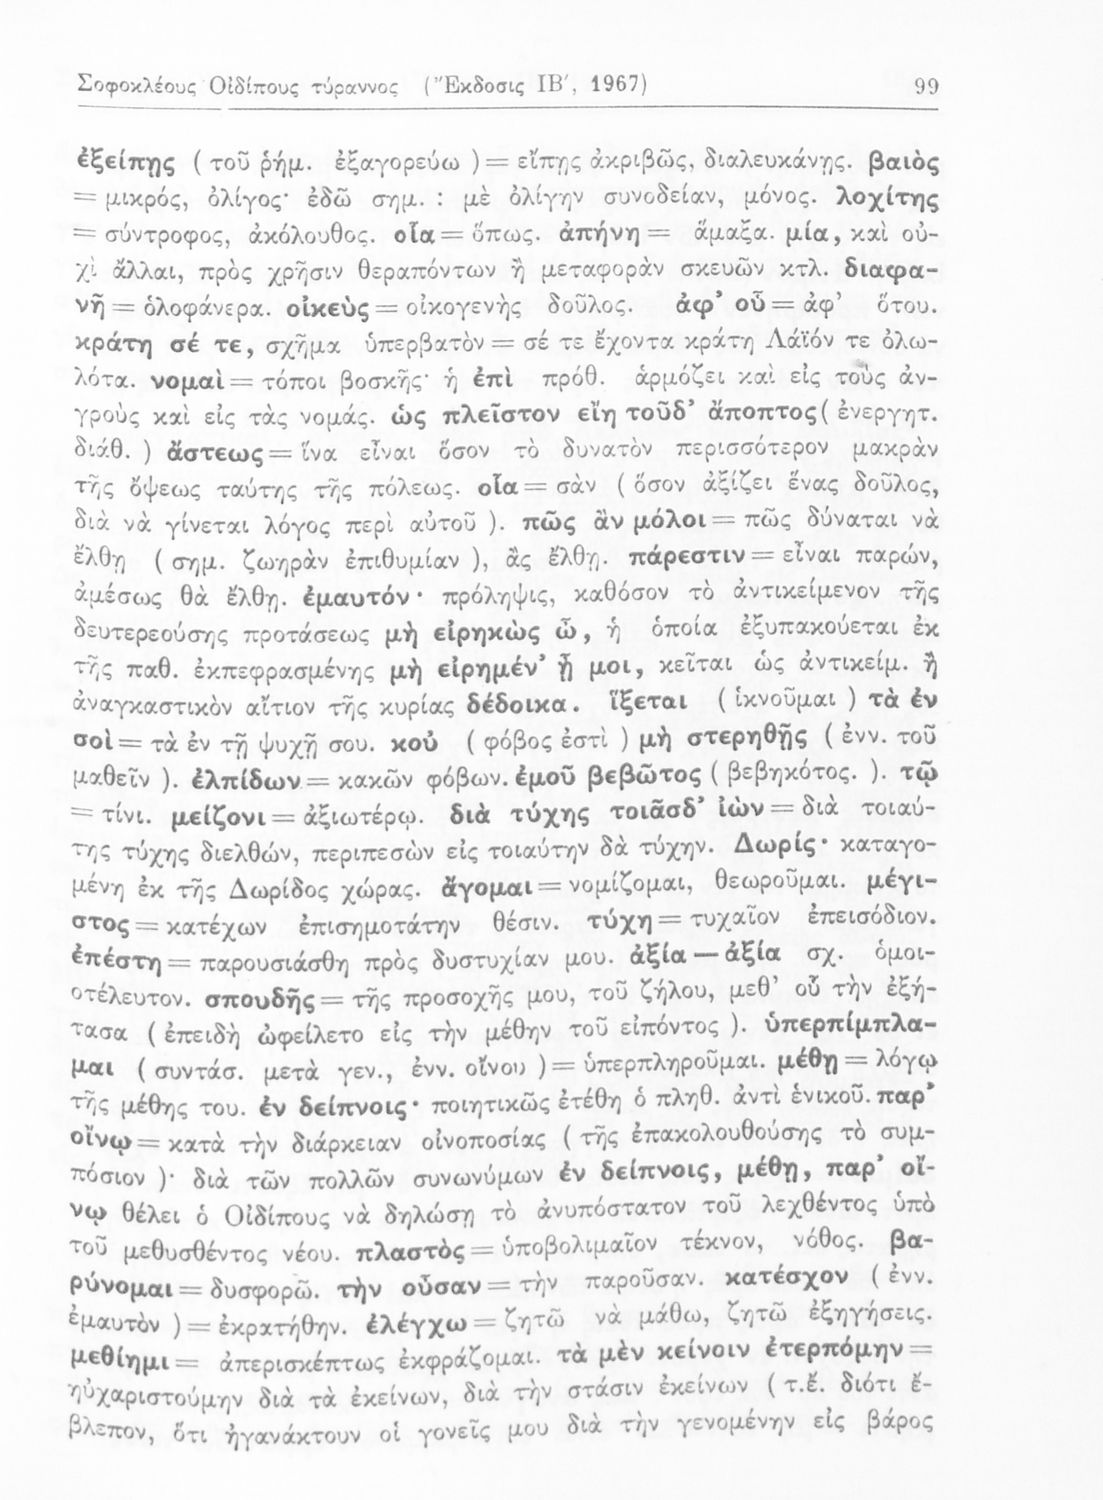 Σοφοκλέους Οἰδίπους τύραννος (Ἔκδοσις ΙΒ′, 1967) 99
ἐξείπῃς ( τοῦ ῥήμ. ἐξαγορεύω ) = εἴπῃς ἀκριβῶς, διαλευκάνῃς. βαιὸς
= μικρός, ὀλίγος· ἐδῶ σημ. : μὲ ὀλίγην συνοδείαν, μόνος. λοχίτης
= σύντροφος, ἀκόλουθος. οἷα = ὅπως. ἀπήνη = ἅμαξα. μία, καὶ οὐ-
χὶ ἄλλαι, πρὸς χρῆσιν θεραπόντων ἢ μεταφορὰν σκευῶν κτλ. διαφα-
νῆ = ὁλοφάνερα. οἰκεὺς = οἰκογενὴς δοῦλος. ἀφ’ οὗ = ἀφ’ ὅτου.
κράτη σέ τε, σχῆμα ὑπερβατὸν = σέ τε ἔχοντα κράτη Λάϊόν τε ὀλω-
λότα. νομαὶ = τόποι βοσκῆς· ἡ ἐπὶ πρόθ. ἁρμόζει καὶ εἰς τοὺς ἀν-
γροὺς καὶ εἰς τὰς νομάς. ὡς πλεῖστον εἴη τοῦδ’ ἄποπτος( ἐνεργητ.
διάθ. ) ἄστεως = ἵνα εἶναι ὅσον τὸ δυνατὸν περισσότερον μακρὰν
τῆς ὄψεως ταύτης τῆς πόλεως. οἷα = σὰν ( ὅσον ἀξίζει ἕνας δοῦλος,
διὰ νὰ γίνεται λόγος περὶ αὐτοῦ ). πῶς ἂν μόλοι = πῶς δύναται νὰ
ἔλθῃ ( σημ. ζωηρὰν ἐπιθυμίαν ), ἂς ἔλθῃ. πάρεστιν = εἶναι παρών,
ἀμέσως θὰ ἔλθῃ. ἐμαυτόν· πρόληψις, καθόσον τὸ ἀντικείμενον τῆς
δευτερεούσης προτάσεως μὴ εἰρηκὼς ὦ, ἡ ὁποία ἐξυπακούεται ἐκ
τῆς παθ. ἐκπεφρασμένης μὴ εἰρημέν’ ᾖ μοι, κεῖται ὡς ἀντικείμ. ἢ
ἀναγκαστικὸν αἴτιον τῆς κυρίας δέδοικα. ἵξεται ( ἱκνοῦμαι ) τὰ ἐν
σοὶ = τὰ ἐν τῇ ψυχῇ σου. κοὐ ( φόβος ἐστὶ ) μὴ στερηθῇς ( ἐνν. τοῦ
μαθεῖν ). ἐλπίδων = κακῶν φόβων. ἐμοῦ βεβῶτος ( βεβηκότος. ). τῷ
= τίνι. μείζονι = ἀξιωτέρῳ. διὰ τύχης τοιᾶσδ’ ἰὼν = διὰ τοιαύ-
της τύχης διελθών, περιπεσὼν εἰς τοιαύτην δὰ τύχην. Δωρίς· καταγο-
μένη ἐκ τῆς Δωρίδος χώρας. ἄγομαι = νομίζομαι, θεωροῦμαι. μέγι-
στος = κατέχων ἐπισημοτάτην θέσιν. τύχη = τυχαῖον ἐπεισόδιον.
ἐπέστη = παρουσιάσθη πρὸς δυστυχίαν μου. ἀξία — ἀξία σχ. ὁμοι-
οτέλευτον. σπουδῆς = τῆς προσοχῆς μου, τοῦ ζήλου, μεθ’ οὗ τὴν ἐξή-
τασα ( ἐπειδὴ ὠφείλετο εἰς τὴν μέθην τοῦ εἰπόντος ). ὑπερπίμπλα-
μαι ( συντάσ. μετὰ γεν., ἐνν. οἴνου ) = ὑπερπληροῦμαι. μέθῃ = λόγῳ
τῆς μέθης του. ἐν δείπνοις· ποιητικῶς ἐτέθη ὁ πληθ. ἀντὶ ἑνικοῦ. παρ’
οἴνῳ = κατὰ τὴν διάρκειαν οἰνοποσίας ( τῆς ἐπακολουθούσης τὸ συμ-
πόσιον )· διὰ τῶν πολλῶν συνωνύμων ἐν δείπνοις, μέθῃ, παρ’ οἴ-
νῳ θέλει ὁ Οἰδίπους νὰ δηλώσῃ τὸ ἀνυπόστατον τοῦ λεχθέντος ὑπὸ
τοῦ μεθυσθέντος νέου. πλαστὸς = ὑποβολιμαῖον τέκνον, νόθος. βα-
ρύνομαι = δυσφορῶ. τὴν οὖσαν = τὴν παροῦσαν. κατέσχον ( ἐνν.
ἐμαυτὸν ) = ἐκρατήθην. ἐλέγχω = ζητῶ νὰ μάθω, ζητῶ ἐξηγήσεις.
μεθίημι = ἀπερισκέπτως ἐκφράζομαι. τὰ μὲν κείνοιν ἐτερπόμην =
ηὐχαριστούμην διὰ τὰ ἐκείνων, διὰ τὴν στάσιν ἐκείνων ( τ.ἔ. διότι ἔ-
βλεπον, ὅτι ἠγανάκτουν οἱ γονεῖς μου διὰ τὴν γενομένην εἰς βάρος